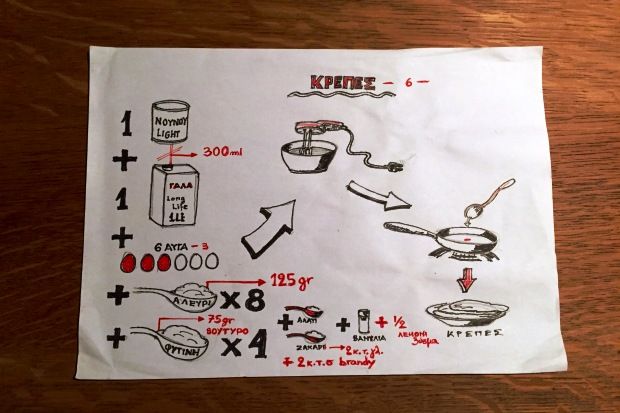 ΚΡΕΠΕΣ - 6 -
1 ΝΟΥΝΟΥ
LIGHT
+ 300ml
1 ΓΑΛΑ
Long
Life
1Lt
+
6 ΑΥΓΑ - 3
125gr
+ ΑΛΕΥΡΙ x8
75gr
ΒΟΥΤΥΡΟ
+ ΦΥΤΙΝΗ x4
+ ΑΛΑΤΙ
ΖΑΧΑΡΗ 2κ.τ.γλ.
+ ΒΑΝΙΛΙΑ
+ 1/2
λεμόνι
ξύσμα
+ 2κ.τ.σ brandy
ΚΡΕΠΕΣ